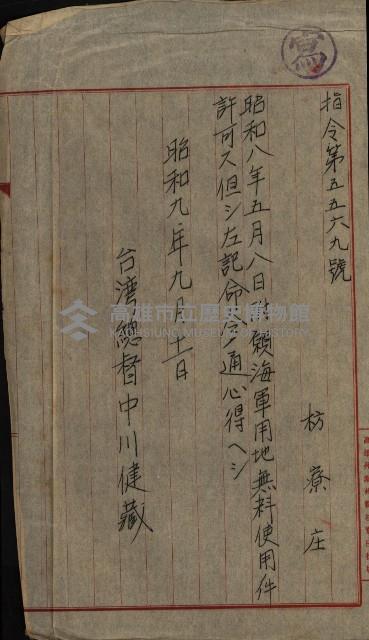 寫
指令第五五六九號
枋寮庄
昭和八年五月八日附願海軍用地無料使用件
許可ス但シ左記命令ノ通心得ヘシ
昭和九年九月十一日
台湾總督中川健藏
高雄市立歷史博物館
KAOHSIUNG MUSEUM OF HISTORY